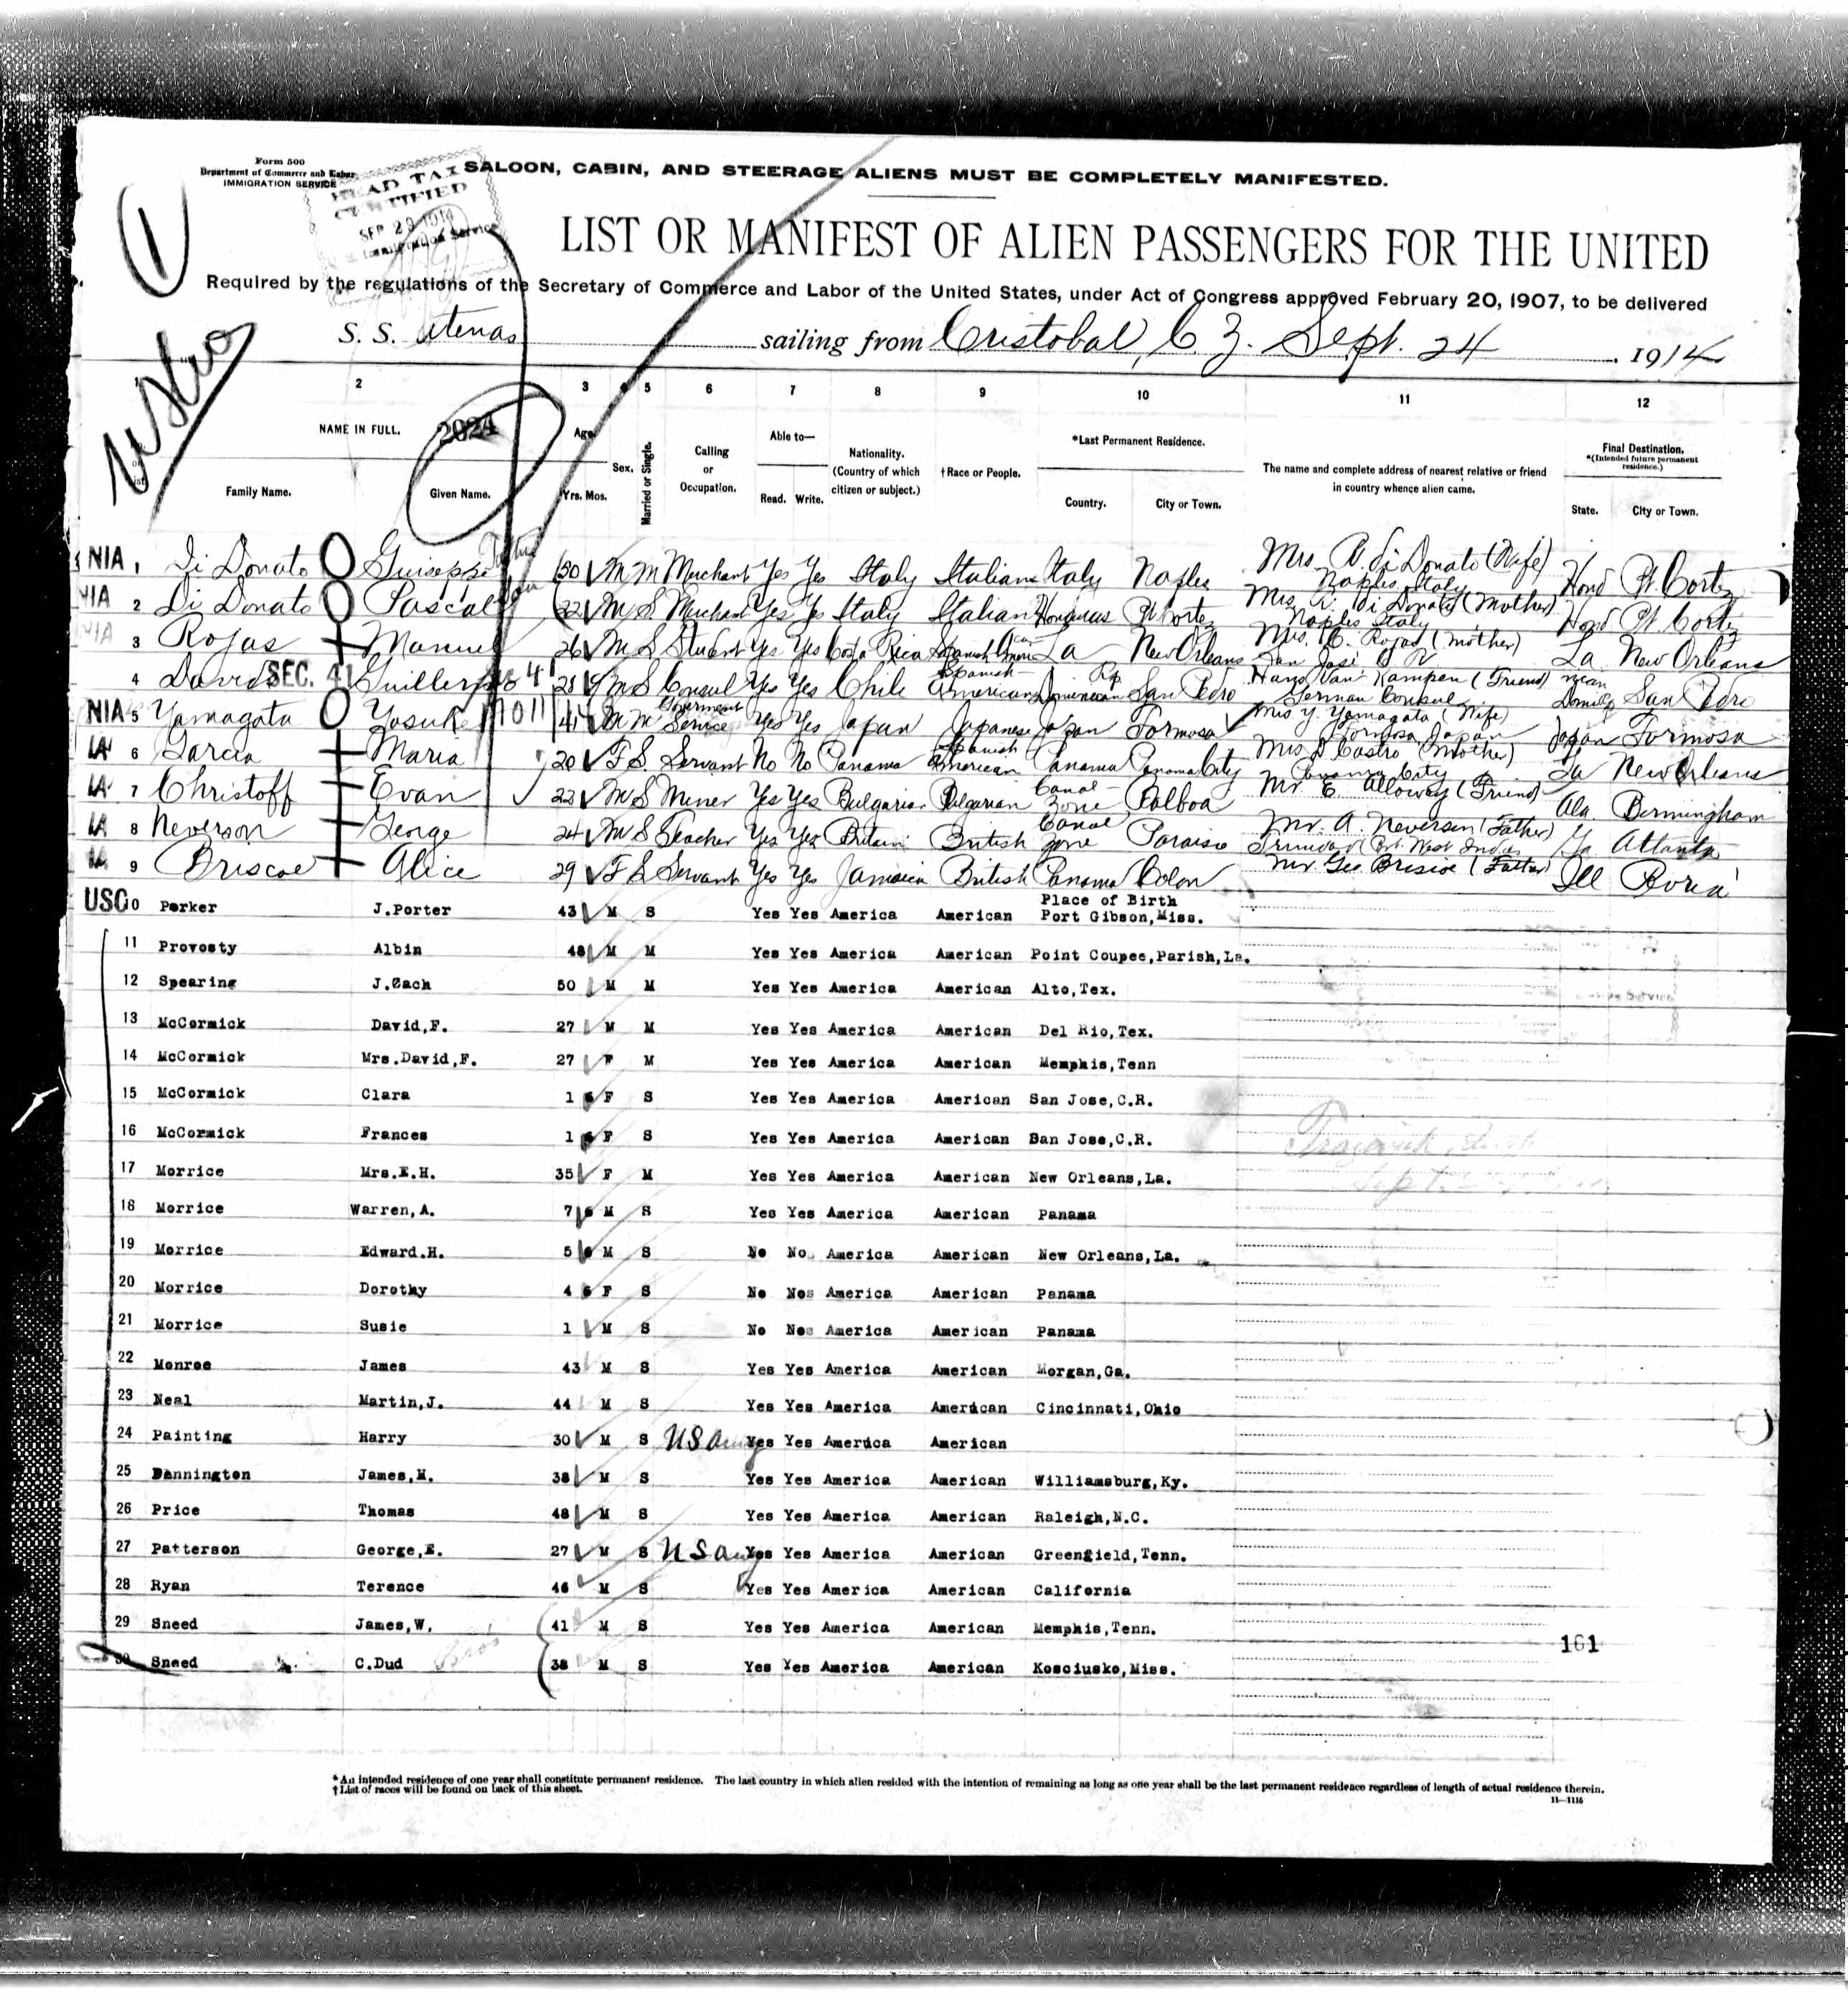 Form 500
Department of Commerce and Labor
IMMIGRATION SERVICE
HEAD TAX
CERTIFIED
SEP 29 1914
Immigration Service
SALOON, CABIN, AND STEERAGE ALIENS MUST BE COMPLETELY MANIFESTED.
1
LIST OR MANIFEST OF ALIEN PASSENGERS FOR THE UNITED
Required by the regulations of the Secretary of Commerce and Labor of the United States, under Act of Congress approved February 20, 1907, to be delivered
S. S. Atenas sailing from Cristobal, C. Z. Sept. 24 1914
2 3 4 5 6 7 8 9 10 11 12
NAME IN FULL. 2024 Age. Sex. Married or Single. Calling or Occupation. Able to— Nationality. (Country of which citizen or subject.) †Race or People. *Last Permanent Residence. The name and complete address of nearest relative or friend in country whence alien came. Final Destination. *(Intended future permanent residence.)
Family Name. Given Name. Yrs. Mos. Read. Write. Country. City or Town. State. City or Town.
NIA 1 Di Donato Guiseppi 50 M M Merchant Yes Yes Italy Italian Italy Naples Mrs. Di Donato (Wife) Naples Italy Hond Pt. Cortez
NIA 2 Di Donato Pascal 22 M S Merchant Yes Yes Italy Italian Honduras Pt Cortez Mrs. Di Donato (Mother) Naples Italy Hond Pt. Cortz
NIA 3 Rojas Manuel 26 M S Student Yes Yes Costa Rica Spanish Amer La New Orleans Mrs. C. Rojas (Mother) San Jose C R La New Orleans
4 David SEC. 41 Guillermo 28 M S Consul Yes Yes Chile Spanish American Dominican Rp. San Pedro Hans Van Kampen (Friend) German Consul San Pedro
NIA 5 Yamagata Yosuke 41 M M Goverment Service Yes Yes Japan Japanese Japan Formosa Mrs Y. Yamagata (Wife) Formosa Japan Japan Formosa
IA 6 Garcia Maria 20 F S Servant No No Panama Spanish American Panama Panama City Mrs D Castro (Mother) Panama City La New Orleans
IA 7 Christoff Evan 23 M S Miner Yes Yes Bulgarian Bulgarian Canal Zone Balboa Mr. E. Alloway (Friend) Ala. Birmingham
IA 8 Neverson George 24 M S Teacher Yes Yes Britain British Canal Zone Paraiso Mr. A. Neversen (Father) Trinidad Brt. West Indies Ga Atlanta
IA 9 Briscoe Alice 29 F S Servant Yes Yes Jamaica British Panama Colon Mr Geo Brisioe (Father) Ill
Place of Birth
USC 0 Parker J.Porter 43 M S Yes Yes America American Port Gibson,Miss.
11 Provosty Albin 48 M M Yes Yes America American Point Coupee,Parish,La.
12 Spearing J.Zach 50 M M Yes Yes America American Alto,Tex.
13 McCormick David,F. 27 M M Yes Yes America American Del Rio,Tex.
14 McCormick Mrs.David,F. 27 F M Yes Yes America American Memphis,Tenn
15 McCormick Clara 1 F S Yes Yes America American San Jose,C.R.
16 McCormick Frances 1 F S Yes Yes America American San Jose,C.R.
17 Morrice Mrs.E.H. 35 F M Yes Yes America American New Orleans,La.
18 Morrice Warren,A. 7 M S Yes Yes America American Panama
19 Morrice Edward.H. 5 M S No No America American New Orleans,La.
20 Morrice Dorothy 4 F S No Nos America American Panama
21 Morrice Susie 1 M S No Nos America American Panama
22 Monroe James 43 M S Yes Yes America American Morgan,Ga.
23 Neal Martin,J. 44 M S Yes Yes America American Cincinnati,Ohio
24 Painting Harry 30 M S US Army Yes Yes America American
25 Dennington James,M. 38 M S Yes Yes America American Williamsburg,Ky.
26 Price Thomas 48 M S Yes Yes America American Raleigh,N.C.
27 Patterson George,E. 27 M S US Army Yes Yes America American Greenfield,Tenn.
28 Ryan Terence 46 M S Yes Yes America American California
29 Sneed James,W. 41 M S Yes Yes America American Memphis,Tenn.
161
30 Sneed C.Dud Bros 38 M S Yes Yes America American Kosciusko,Miss.
*An intended residence of one year shall constitute permanent residence. The last country in which alien resided with the intention of remaining as long as one year shall be the last permanent residence regardless of length of actual residence therein.
†List of races will be found on back of this sheet.
11—1116